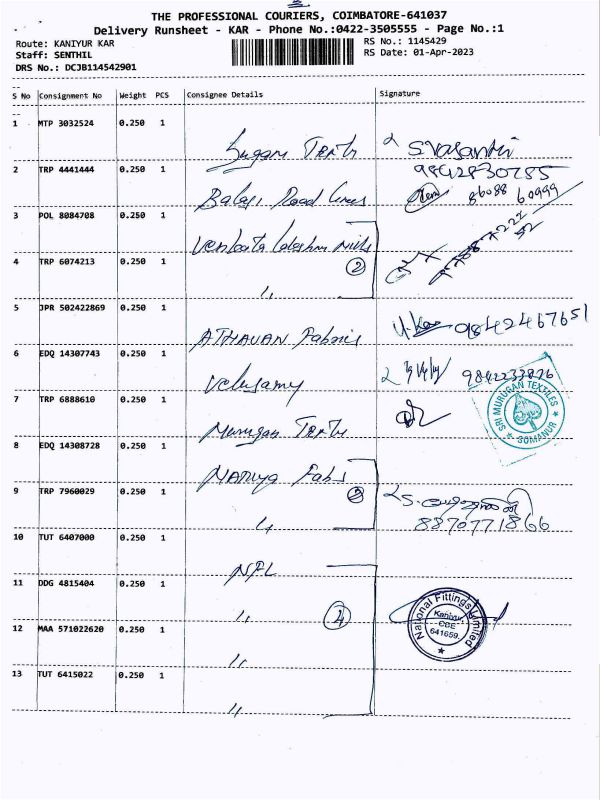 THE PROFESSIONAL COURIERS, COIMBATORE-641037
Delivery Runsheet - KAR - Phone No.:0422-3505555 - Page No.:1
Route: KANIYUR KAR
RS No.: 1145429
Staff: SENTHIL
RS Date: 01-Apr-2023
DRS No.: DCJB114542901
S No Consignment No Weight PCS Consignee Details Signature
1 MTP 3032524 0.250 1
Sugam Texts S.Vasanthi
2 TRP 4441444 0.250 1 9842830785
Balaji Road Lines 86088 60999
3 POL 8084708 0.250 1
Venkata Lakshmi Mills
4 TRP 6074213 0.250 1 2
"
5 JPR 502422869 0.250 1
ATHAVAN Fabrics 9842467651
6 EDQ 14307743 0.250 1
Velusamy 9842233026
7 TRP 6888610 0.250 1
Murugan Texts
SRI MURUGAN TEXTILES
SOMANUR
8 EDQ 14308728 0.250 1
Fabs
9 TRP 7960029 0.250 1 2
" 8870771866
10 TUT 6407000 0.250 1
NFL
11 DDG 4815404 0.250 1
" 4
National Fittings Limited
Kaniyur
CBE
641659.
12 MAA 571022620 0.250 1
"
13 TUT 6415022 0.250 1
"